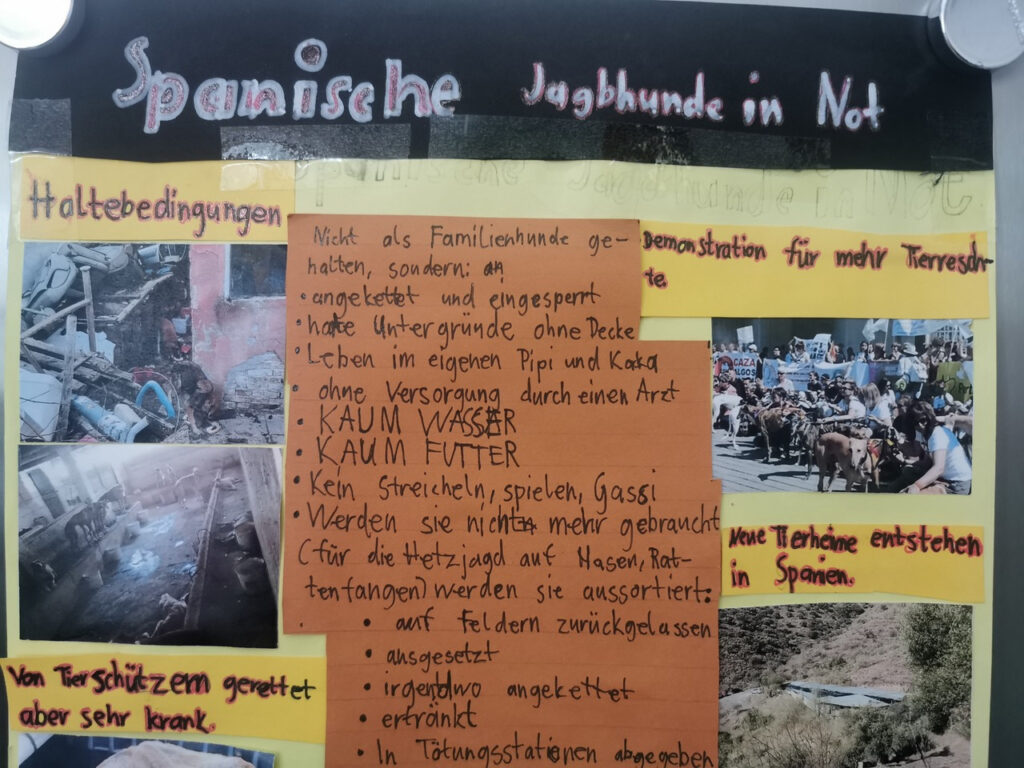 Spanische Jagdhunde in Not
Spanische Jagdhunde in Not.
Haltebedingungen
Nicht als Familienhunde ge-
halten, sondern: an
• angekettet und eingesperrt
• hate Untergründe ohne Decke
• Leben im eigenen Pipi und Kaka
• ohne Versorgung durch einen Arzt
• KAUM WASSER
• KAUM FUTTER
• Kein Streicheln, spielen, Gassi
• Werden sie nicht mehr gebraucht
(für die Hetzjagd auf Hasen, Rat-
tenfangen) werden sie aussortiert:
• auf Feldern zurückgelassen
• ausgesetzt
• irgendwo angekettet
• ertränkt
• In Tötungsstationen abgegeben
Demonstration für mehr Tierresch-
te.
CAZA
Neue Tierheime entstehen
in Spanien.
Von Tierschützern gerettet
aber sehr krank.